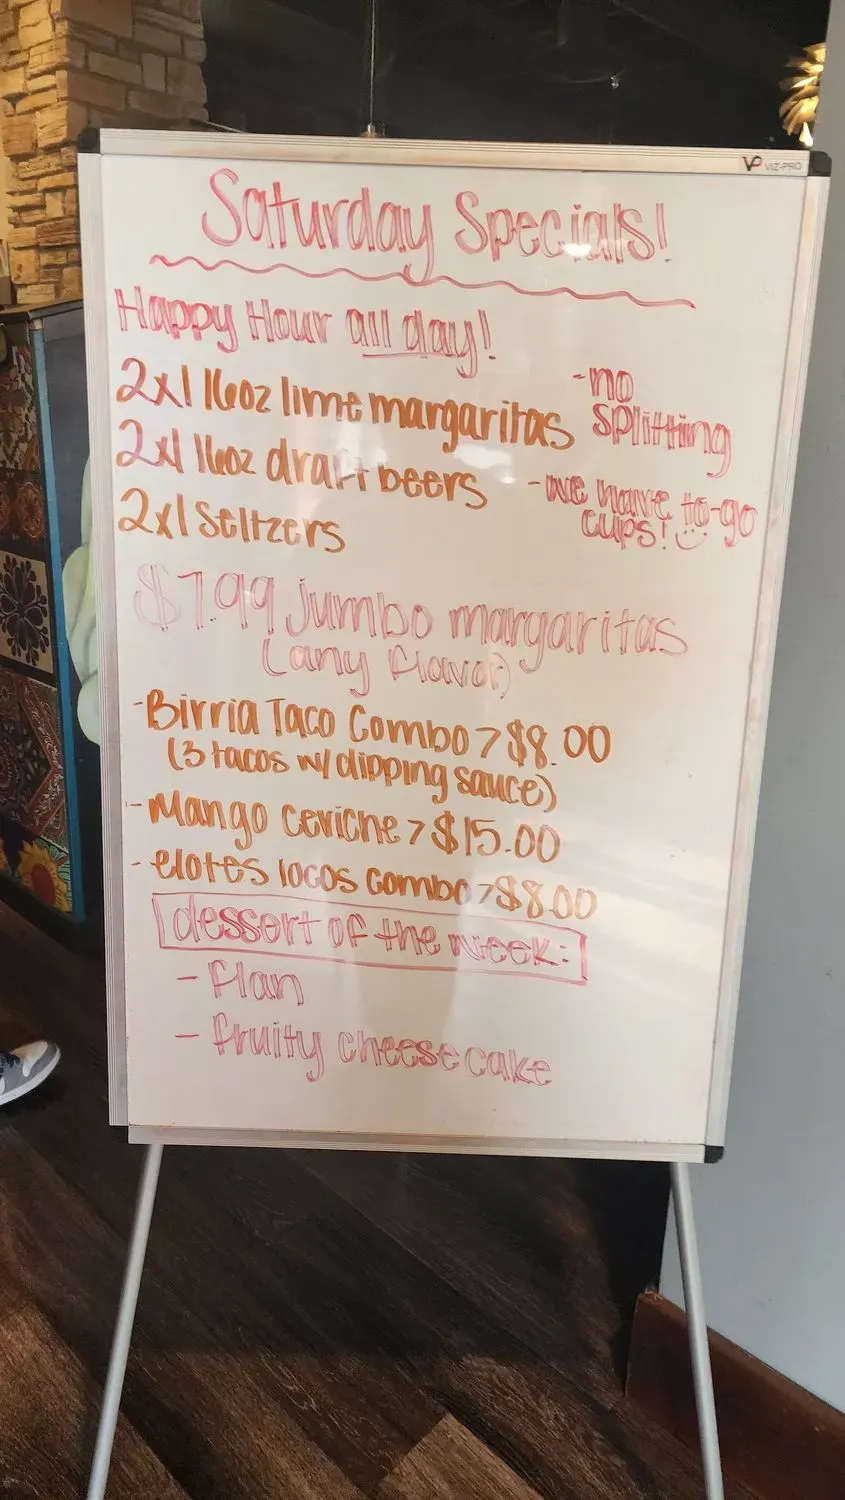 VP VIZ-PRO
Saturday Specials!
Happy Hour all day!
2x1 16oz lime margaritas
2x1 16oz draft beers
2x1 Seltzers
-no
splitting
-we have to-go
cups! :)
$7.99 jumbo margaritas
(any flavor)
-Birria Taco Combo > $8.00
(3 tacos w/ dipping sauce)
-Mango ceviche > $15.00
-elotes locos combo > $8.00
dessert of the week:
- Flan
- fruity cheesecake